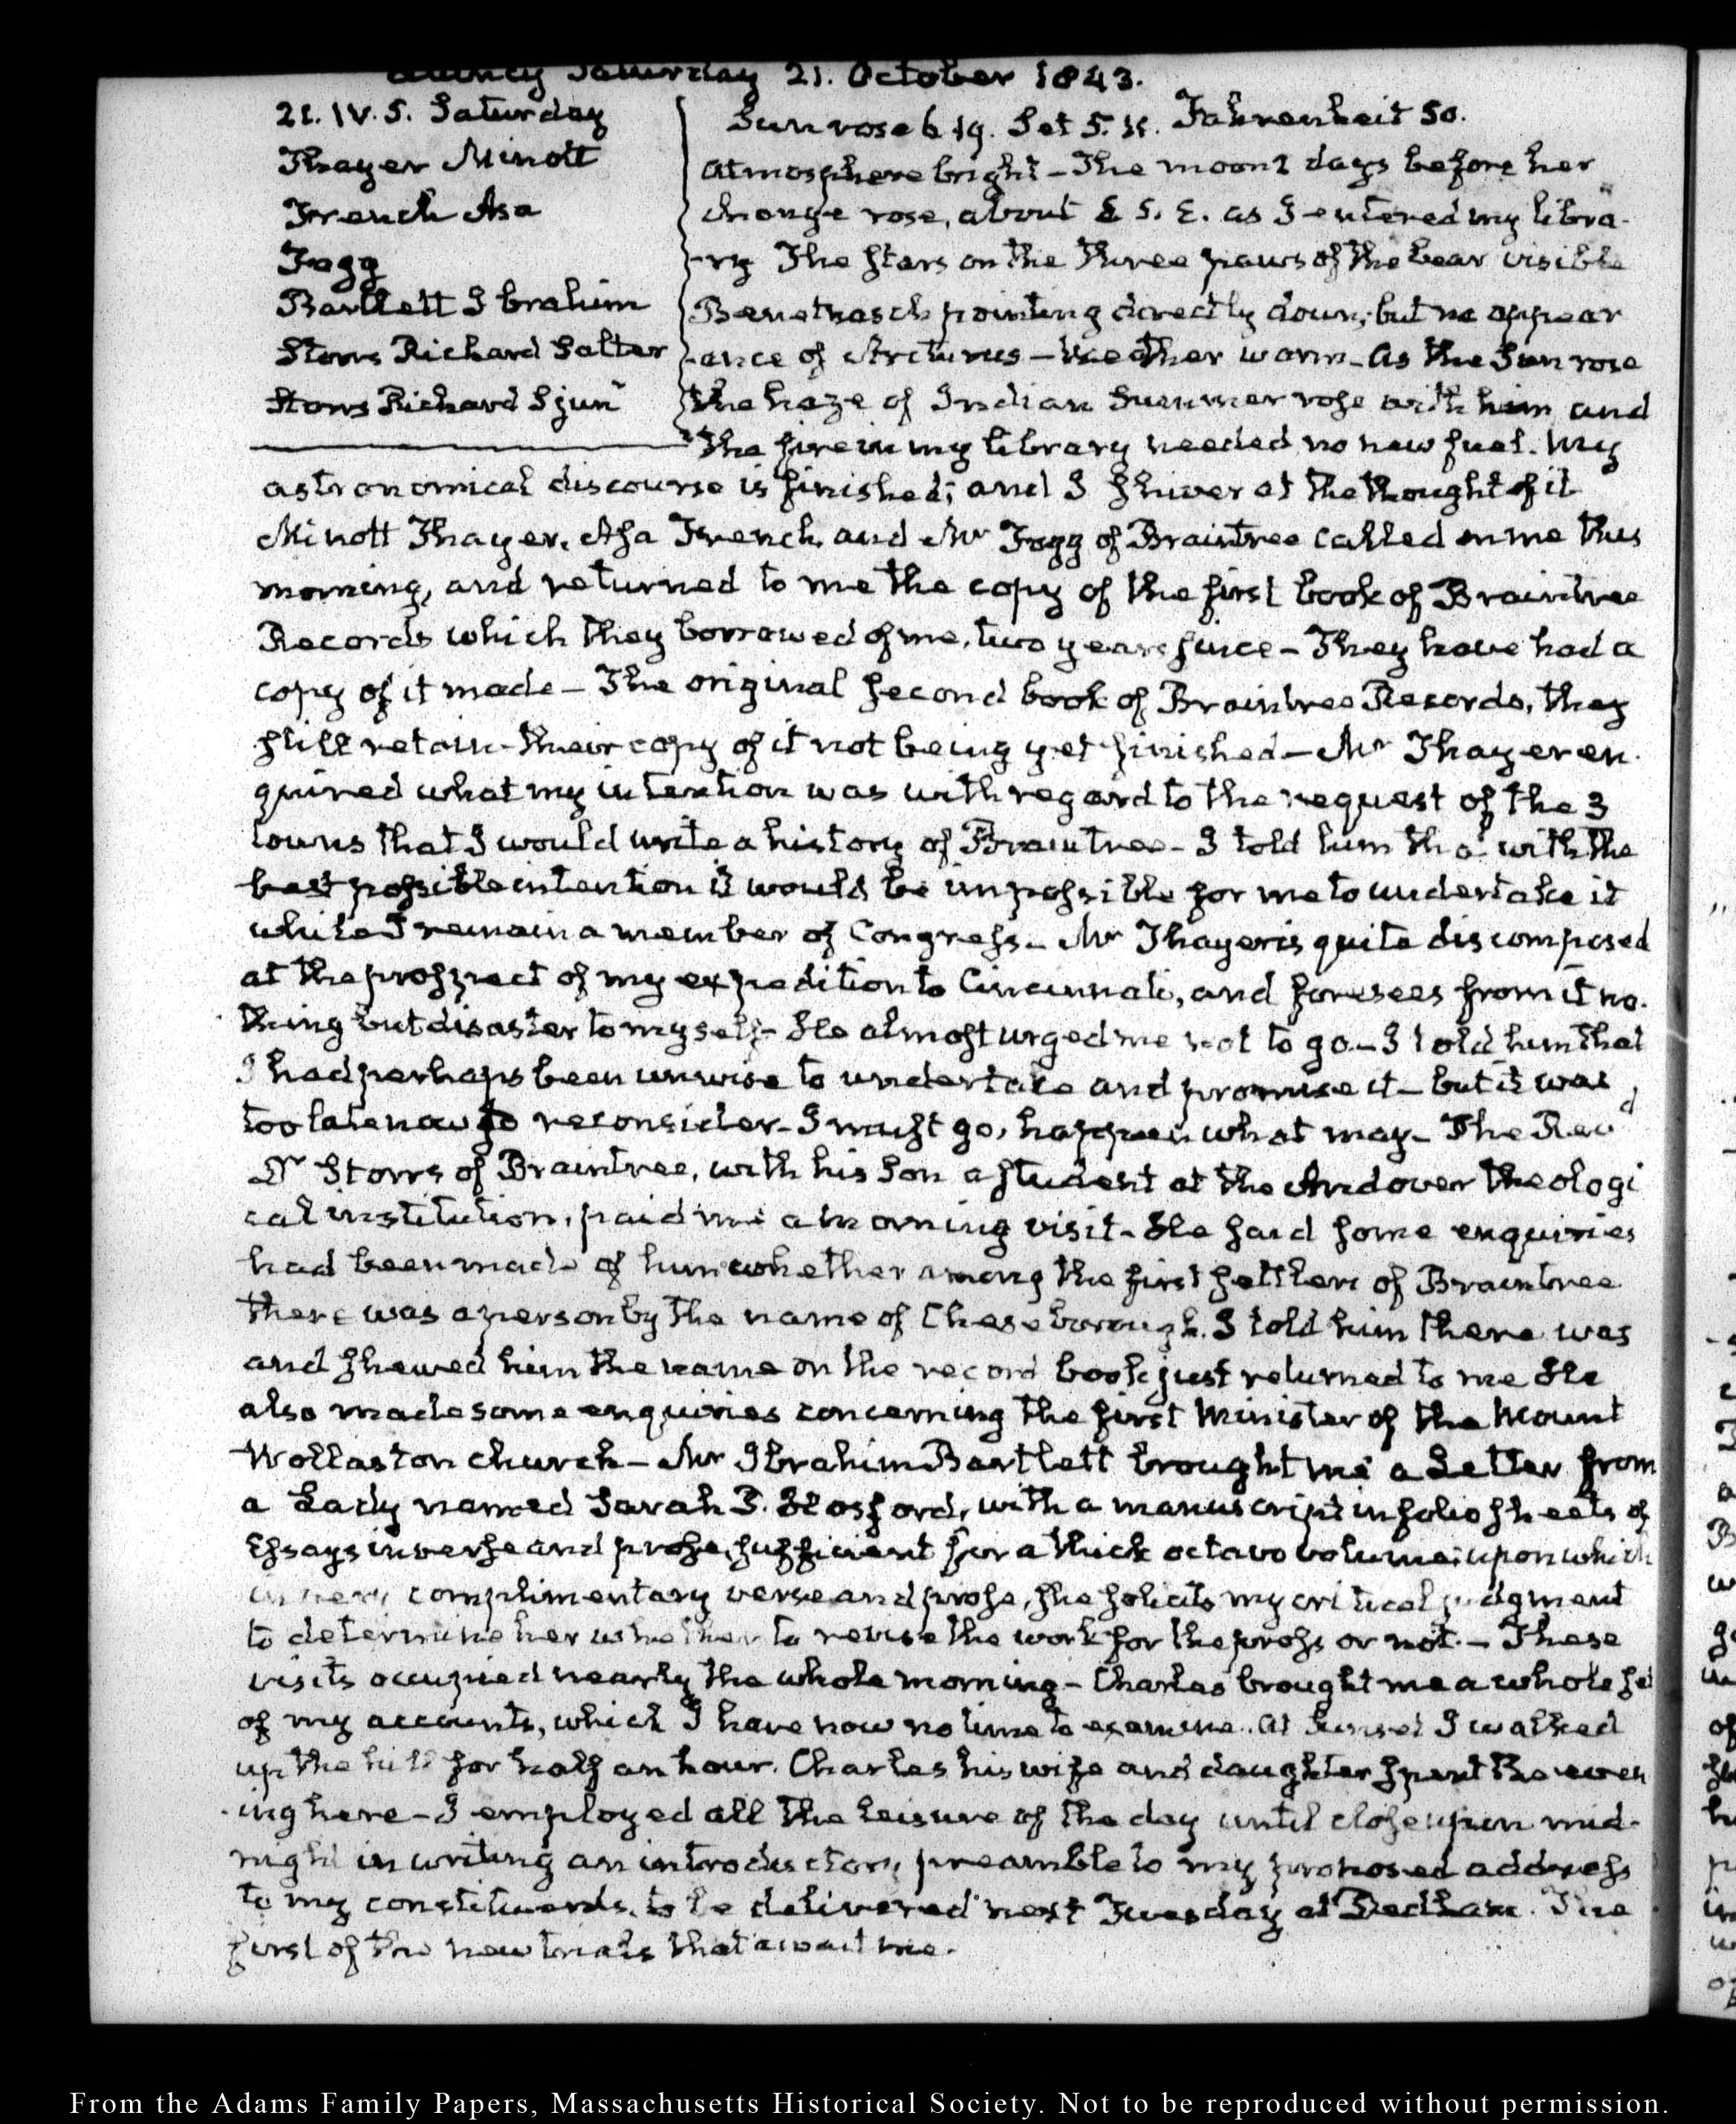 Quincy Saturday 21. October 1843.
21. IV. 5. Saturday
Thayer Minott
French Asa
Fogg
Bartlett Ibrahim
Storrs Richard Salter
Storrs Richard S jun͏r
Sun rose 6.19. Set 5. Fahrenheit 50.
Atmosphere bright – The moon 2 days before her
change rose, about E S. E. as I entered my libra-
-ry The stars on the three paws of the bear visible
Benetnasch pointing directly down; but no appear
-ance of Arcturus – Weather warm – As the Sun rose
the haze of Indian Summer rose with him and
the fire in my library needed no new fuel. My
astronomical discourse is finished; and I shiver at the thought of it
Minott Thayer, Asa French, and Mr Fogg of Braintree called on me this
morning, and returned to me the copy of the first book of Braintree
Records which they borrowed of me, two years since – They have had a
copy of it made – The original second book of Braintree Records, they
still retain – their copy of it not being yet finished – Mr Thayer en-
quired what my intention was with regard to the request of the 3
towns that I would write a history of Braintree – I told him tho' with the
best possible intention it would be impossible for me to undertake it
while I remain a member of Congress – Mr Thayer is quite discomposed
at the prospect of my expedition to Cincinnati, and foresees from it no-
thing but disaster to myself – He almost urged me not to go – I told him that
I had perhaps been unwise to undertake and promise it – but it was
too late now to reconsider – I must go, happen what may – The Revd
Dr Storrs of Braintree, with his Son a student at the Andover Theologi
cal institution, paid me a morning visit – He said some enquiries
had been made of him whether among the first settlers of Braintree
there was a person by the name of Cheseborough. I told him there was
and shewed him the name on the record book just returned to me He
also made some enquiries concerning the first Minister of the Mount
Wollaston church – Mr Ibrahim Bartlett brought me a Letter from
a Lady named Sarah Hosford, with a manuscript in folio sheets of
Essays in verse and prose, sufficient for a thick octavo volume; upon which
in very complimentary verse and prose, she solicits my critical judgment
to determine her whether to revise the work for the press or not – These
visits occupied nearly the whole morning – Charles brought me a whole set
of my accounts, which I have now no time to examine. At Sunset I walked
up the hill for half an hour. Charles his wife and daughter spent the even
-ing here – I employed all the leisure of the day until close upon mid-
night in writing an introductory preamble to my proposed address
to my constituents, to be delivered next Tuesday at Dedham. The
first of the new trials that await me.
From the Adams Family Papers, Massachusetts Historical Society. Not to be reproduced without permission.